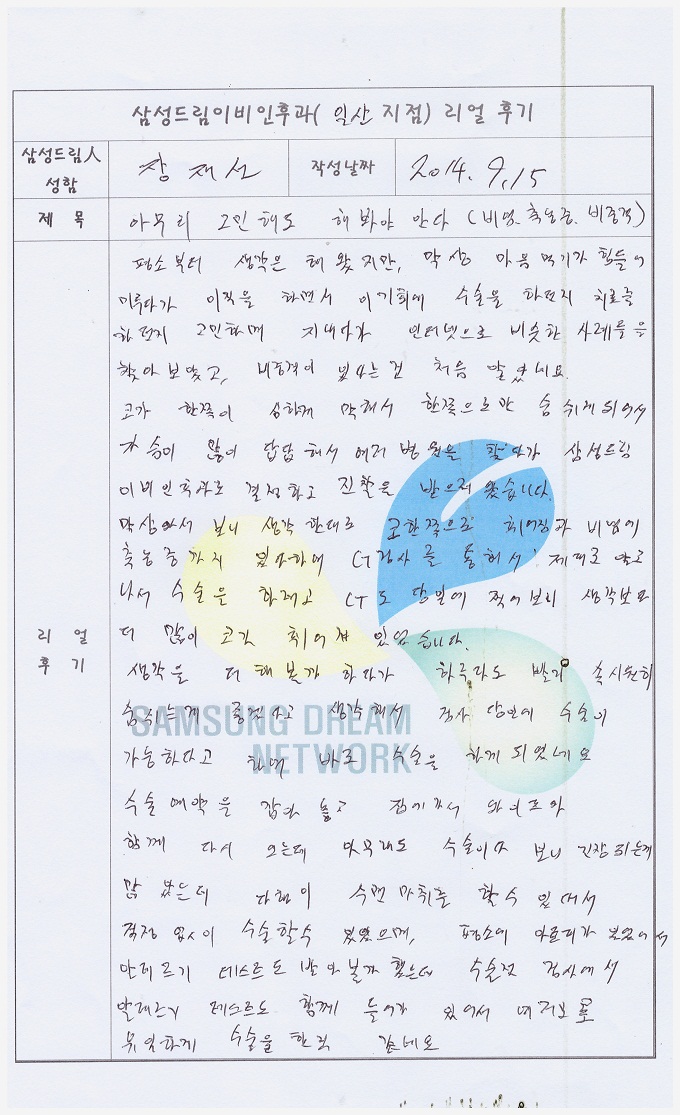 삼성드림이비인후과( 일산 지점) 리얼 후기
삼성드림人 성함
장재선
작성날짜
2014. 9. 15
제 목
아무리 고민해도 해봐야 안다 (비염.축농증.비중격)
리 얼 후 기
평소부터 생각은 해 왔지만, 막상 마음 먹기가 힘들어
미루다가 이직을 하면서 이기회에 수술을 하던지 치료를
하던지 고민하며 지내다가 인터넷으로 비슷한 사례들을
찾아 보았고, 비중격이 있다는걸 처음 알았네요.
코가 한쪽이 심하게 막혀서 한쪽으로만 숨쉬게 되어서
가슴이 많이 답답해서 여러 병원을 찾다가 삼성드림
이비인후과로 결정하고 진찰을 받으러 왔습니다.
막상와서 보니 생각한대로 코한쪽으로 휘어짐과 비염에
축농증까지 있다하여 CT검사를 통해서 제대로 알고
나서 수술을 하려고 CT도 당일에 찍어보니 생각보다
더 많이 코가 휘어져 있었습니다.
생각을 더 해볼까 하다가 하루라도 빨리 속시원히
숨쉬는게 좋겠다고 생각해서 검사 당일에 수술이
가능하다고 하여 바로 수술을 하게 되었네요
수술 예약을 잡아 놓고 집에가서 와이프와
함께 다시 오는데 아무래도 수술이다 보니 긴장되는게
많았는데 다행이 수면마취를 할수 있어서
걱정 없이 수술할수 있었으며, 평소에 아토피가 있어서
알레르기 테스트도 받아볼까 했는데 수술전 검사에서
알레르기 테스트도 함께 들어가 있어서 여러모로
유익하게 수술을 한것 같네요
SAMSUNG DREAM
NETWORK